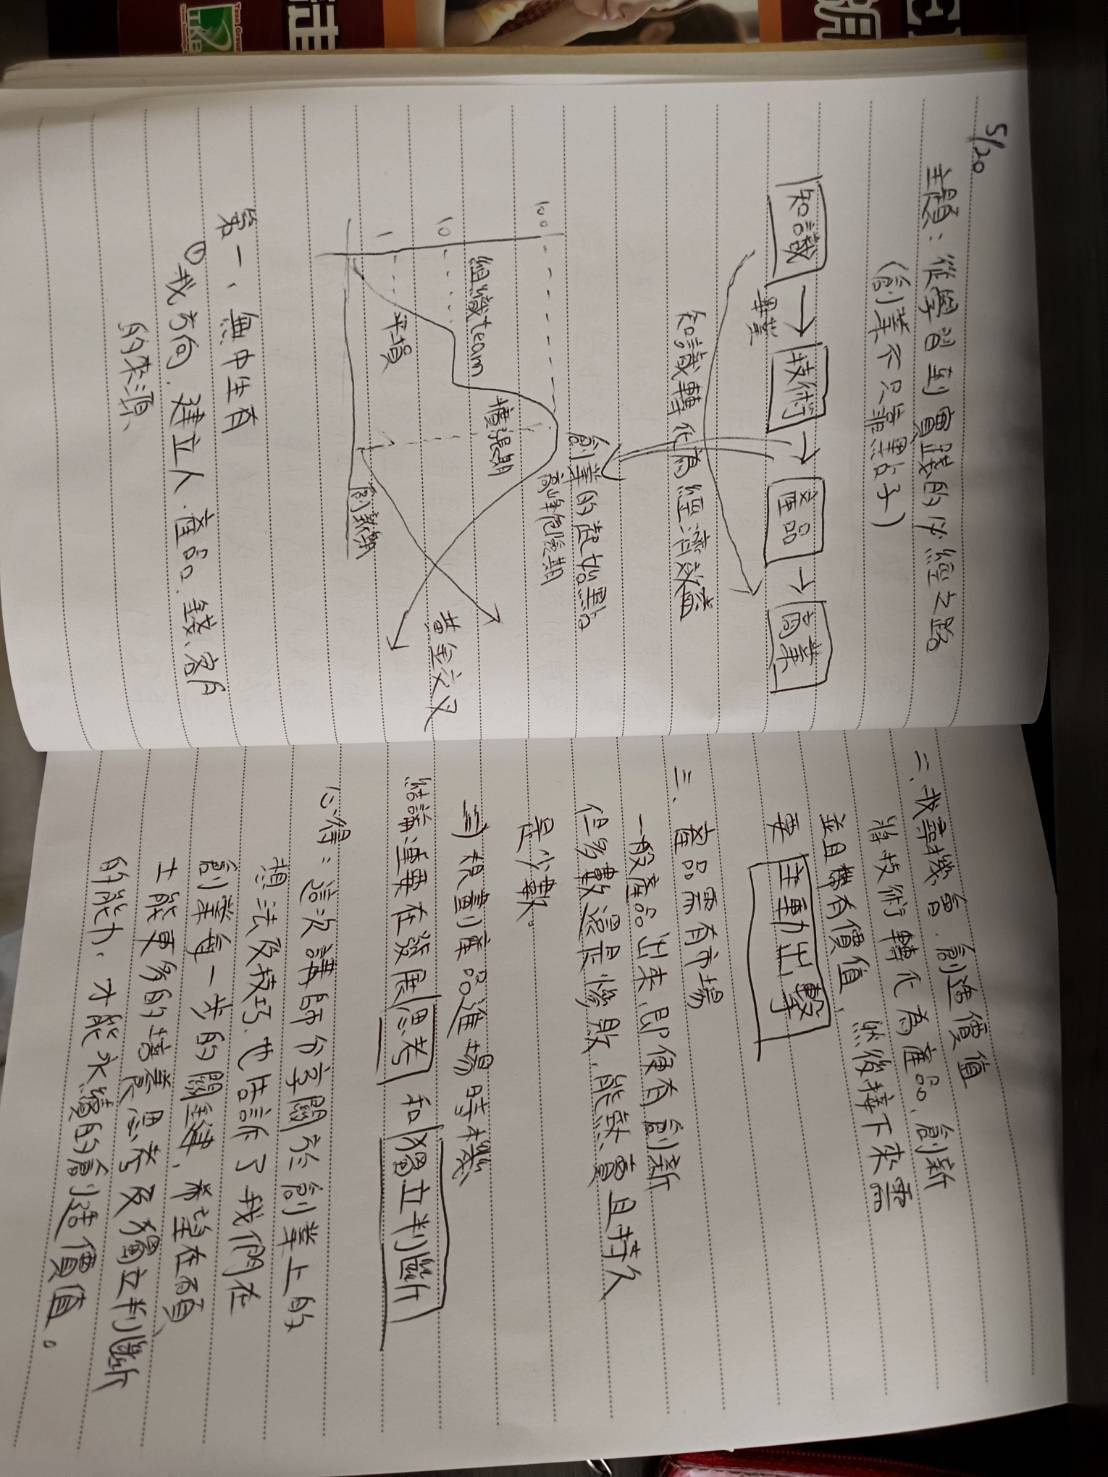 5/20
主題：從學習到實踐的必經之路
(創業不只靠點子)
知識 → 技術 → 產品 → 商業
畢業
知識轉化為經濟效值
創業的起始點
高峰危險期
100
10
1
組織team
擴張期
平損
創新期
黃金交叉
第一、無中生有
①找方向、建立人、產品、錢、客戶
的來源
二、找尋機會、創造價值
將技術轉化為產品、創新
並且帶有價值，然後接下來需
要主動出擊
三、產品需有市場
一般產品出來，即便有創新
但多數還是慘敗，能熱賣且持久
是少數。
規劃產品進場時機
結論：重要在發展思考和獨立判斷
心得：這次講師分享關於創業上的
想法及技巧，也告訴了我們在
創業每一步的關鍵，希望在
能更多的培養思考及獨立判斷
的能力，才能永續的創造價值。